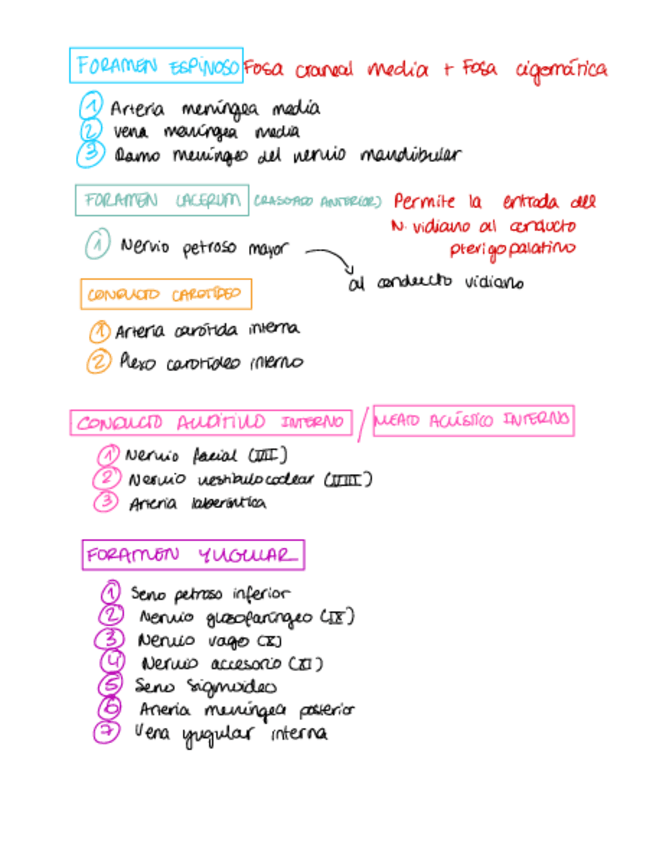 FORAMEN ESPINOSO Fosa craneal media + Fosa cigomática
1 Arteria meníngea media
2 vena meníngea media
3 Ramo meníngeo del nervio mandibular
FORAMEN LACERUM (RASGADO ANTERIOR) Permite la entrada del
N. vidiano al conducto
pterigopalatino
1 Nervio petroso mayor
al conducto vidiano
CONDUCTO CAROTÍDEO
1 Arteria carótida interna
2 Plexo carotídeo interno
CONDUCTO AUDITIVO INTERNO / MEATO ACÚSTICO INTERNO
1 Nervio facial (VII)
2 Nervio vestibulococlear (VIII)
3 Arteria laberíntica
FORAMEN YUGULAR
1 Seno petroso inferior
2 Nervio glosofaríngeo (IX)
3 Nervio vago (X)
4 Nervio accesorio (XI)
5 Seno sigmoideo
6 Arteria meníngea posterior
7 Vena yugular interna